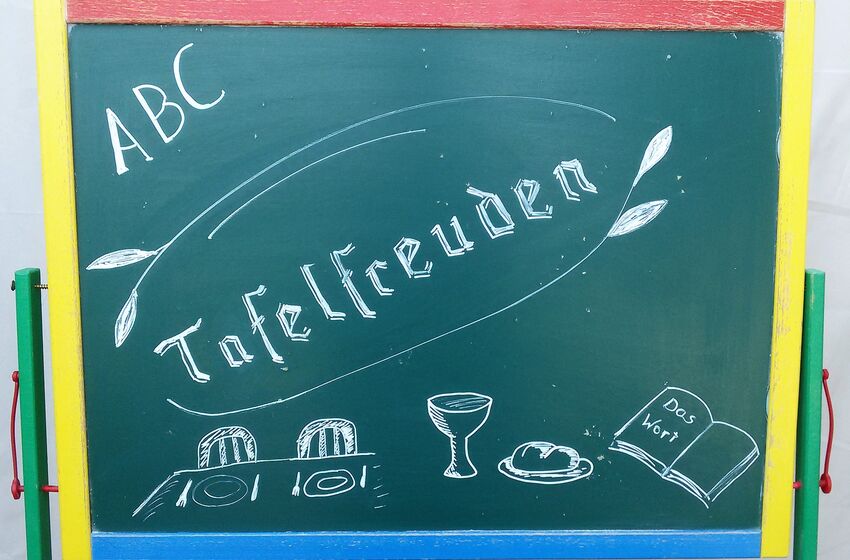 ABC
Tafelfreuden
Das
Wort